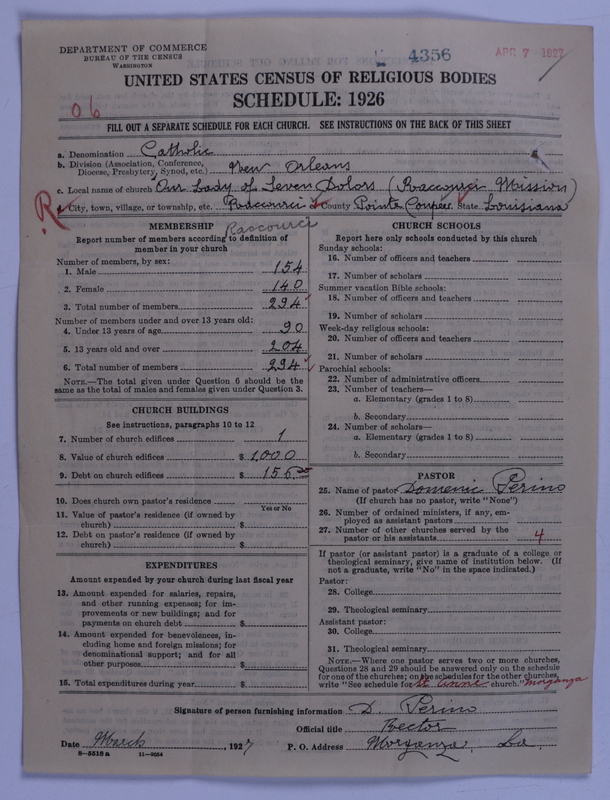 DEPARTMENT OF COMMERCE
BUREAU OF THE CENSUS
WASHINGTON
4356
APR 7 1927
UNITED STATES CENSUS OF RELIGIOUS BODIES
SCHEDULE: 1926
06
FILL OUT A SEPARATE SCHEDULE FOR EACH CHURCH. SEE INSTRUCTIONS ON THE BACK OF THIS SHEET
a. Denomination Catholic
b. Division (Association, Conference, Diocese, Presbytery, Synod, etc.) New Orleans
c. Local name of church Our Lady of Seven Dolors (Raccourci Mission)
R
d. City, town, village, or township, etc. Raccourci County Pointe Coupee State Louisiana
Raccourci
MEMBERSHIP
Report number of members according to definition of
member in your church
Number of members, by sex:
1. Male 154
2. Female 140
3. Total number of members 294
Number of members under and over 13 years old:
4. Under 13 years of age 90
5. 13 years old and over 204
6. Total number of members 294
NOTE.—The total given under Question 6 should be
same as the total of males and females given under Question 3.
CHURCH BUILDINGS
See instructions, paragraphs 10 to 12
7. Number of church edifices 1
8. Value of church edifices $ 1,000
9. Debt on church edifices $ 156.00
10. Does church own pastor's residence
Yes or No
11. Value of pastor's residence (if owned by
church) $
12. Debt on pastor's residence (if owned by
church) $
EXPENDITURES
Amount expended by your church during last fiscal year
13. Amount expended for salaries, repairs,
and other running expenses; for im-
provements or new buildings; and for
payments on church debt $
14. Amount expended for benevolences, in-
cluding home and foreign missions; for
denominational support; and for all
other purposes $
15. Total expenditures during year $
CHURCH SCHOOLS
Report here only schools conducted by this church
Sunday schools:
16. Number of officers and teachers
17. Number of scholars
Summer vacation Bible schools:
18. Number of officers and teachers
19. Number of scholars
Week-day religious schools:
20. Number of officers and teachers
21. Number of scholars
Parochial schools:
22. Number of administrative officers
23. Number of teachers—
a. Elementary (grades 1 to 8)
b. Secondary
24. Number of scholars—
a. Elementary (grades 1 to 8)
b. Secondary
PASTOR
25. Name of pastor Domenic Perino
(If church has no pastor, write "None")
26. Number of ordained ministers, if any, em-
ployed as assistant pastors
27. Number of other churches served by the
pastor or his assistants 4
If pastor (or assistant pastor) is a graduate of a college or
theological seminary, give name of institution below. (If
not a graduate, write "No" in the space indicated.)
Pastor:
28. College
29. Theological seminary
Assistant pastor:
30. College
31. Theological seminary
NOTE.—Where one pastor serves two or more churches,
Questions 28 and 29 should be answered only on the schedule
for one of the churches; on the schedules for the other churches,
write "See schedule for church." Morganza
Signature of person furnishing information D. Perino
Official title Rector
Date March, 1927
P. O. Address Morganza, La.
8—5518a 11—9254